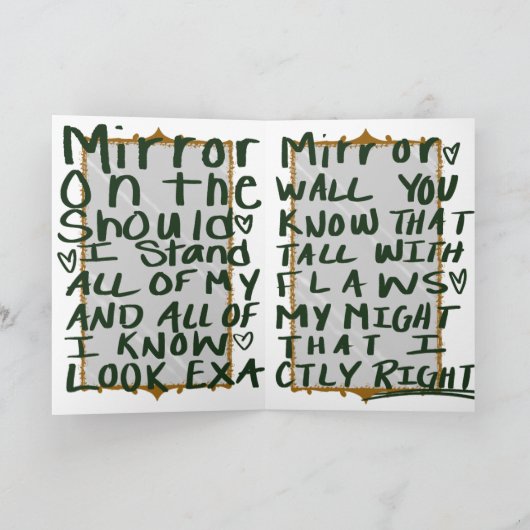 Mirror Mirror
On the WALL YOU
Should KNOW THAT
I Stand TALL WITH
ALL OF MY FLAWS
AND ALL OF MY MIGHT
I KNOW THAT I
LOOK EXACTLY RIGHT